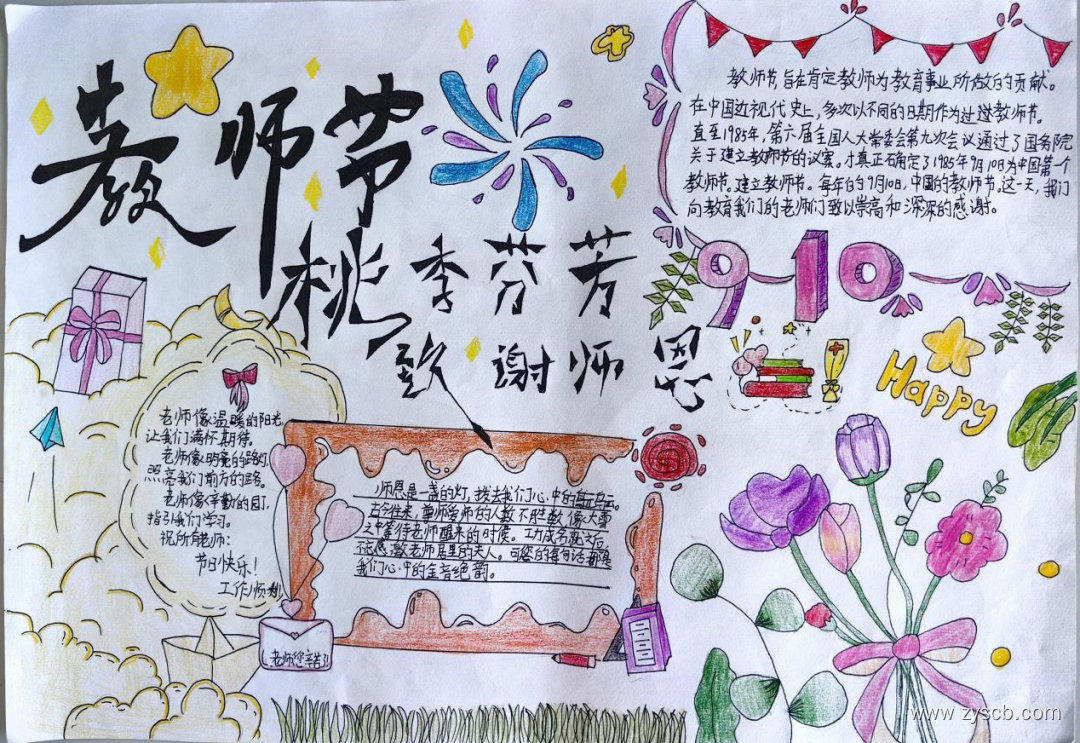 教师节
桃李芬芳
致谢师恩
教师节,旨在肯定教师为教育事业所做的贡献。
在中国近现代史上,多次以不同的日期作为过教师节。
直至1985年,第六届全国人大常委会第九次会议通过了国务院
关于建立教师节的议案,才真正确定了1985年9月10日为中国第一个
教师节。建立教师节。每年的9月10日,中国的教师节。这一天,我们
向教育我们的老师们致以崇高和深深的感谢。
910
Happy
老师像温暖的阳光,
让我们满怀期待。
老师像明亮的路灯,
照亮我们前方的路。
老师像辛勤的园丁,
指引我们学习。
祝所有老师:
节日快乐!
工作顺利
师恩是一盏的灯,拨去我们心中的
古今往来,尊师爱师的人数不胜数,像大雪
之中等待老师醒来的时候。功成名就之后,
不忘感激老师居里的夫人。可您的每句话都是
我们心中的金音绝韵。
老师您辛苦了
www.zyscb.com